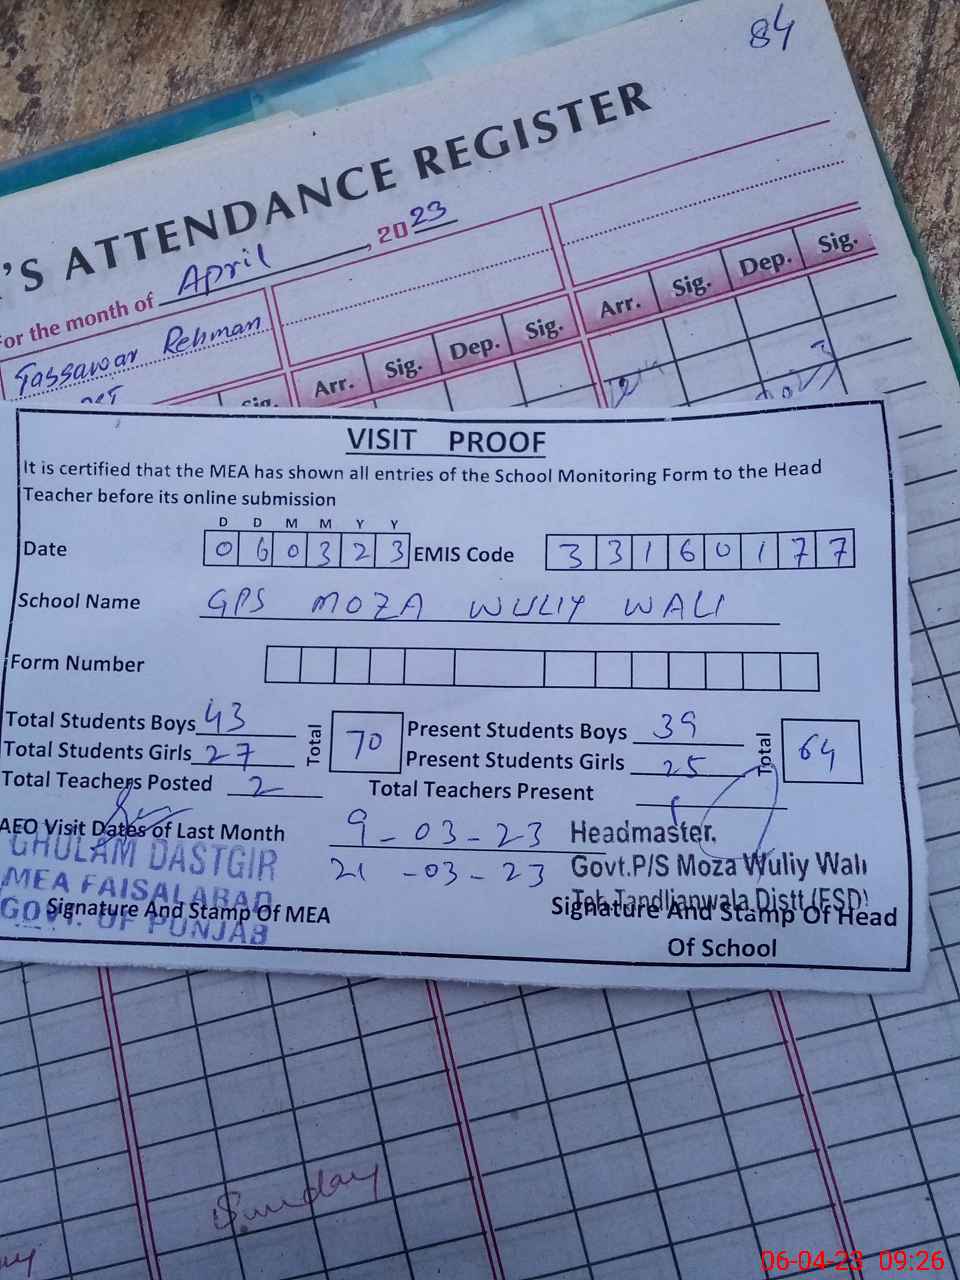 84
'S ATTENDANCE REGISTER
For the month of April, 2023
Tassawar Rehman
PST
Sig. Arr. Sig. Dep. Sig. Arr. Sig. Dep. Sig.
VISIT PROOF
It is certified that the MEA has shown all entries of the School Monitoring Form to the Head
Teacher before its online submission
D D M M Y Y
Date 060323 EMIS Code 33160177
School Name GPS MOZA WULIY WALI
Form Number
Total Students Boys 43 Total 70 Present Students Boys 39 Total 64
Total Students Girls 27 Present Students Girls 25
Total Teachers Posted 2 Total Teachers Present
AEO Visit Dates of Last Month 9-03-23 Headmaster.
21-03-23 Govt.P/S Moza Wuliy Wali
Teh Tandlianwala Distt (FSD)
GHULAM DASTGIR
MEA FAISALABAD
GOVT. OF PUNJAB
Signature And Stamp Of MEA
Signature And Stamp Of Head
Of School
Sunday
06-04-23 09:26